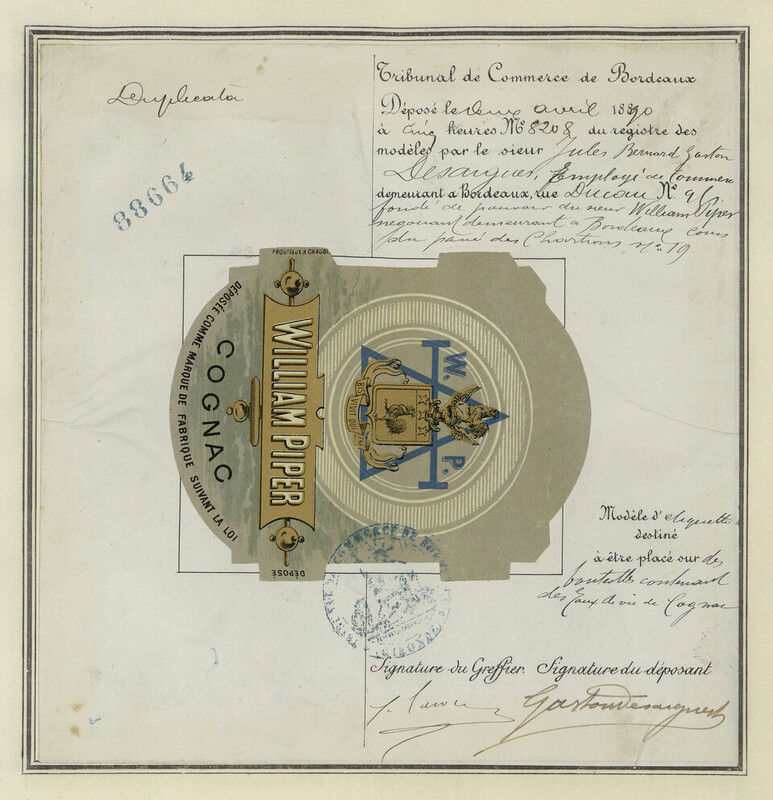 Duplicata
88664
Tribunal de Commerce de Bordeaux
Déposé le deux avril 1890
à cinq heures Nº 8208 du registre des
modèles par le sieur Jules Bernard Gaston
Desaigues, Employé de Commerce
demeurant à Bordeaux, rue Ducau Nº 9
fondé de pouvoir du sieur William Piper
négociant demeurant à Bordeaux cours
du pavé des Chartrons nº 19
PROUTEAUX & CHAUB
DÉPOSÉE COMME MARQUE DE FABRIQUE SUIVANT LA LOI
COGNAC
WILLIAM PIPER
W. P.
BIS VIVIT QUI
DÉPOSÉ
Modèle d'étiquette
destiné
à être placé sur des
bouteilles contenant
des Eaux de vie de Cognac
COMMERCE DE
Signature du Greffier. Signature du déposant
Gaston Desaigues